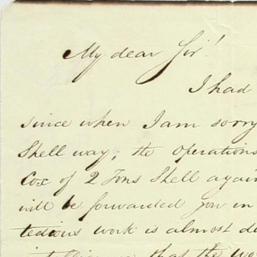 My dear Sir!
I had
since when I am sorry
Shell way, the operations
Cox of 2 Tons Shell again
will be forwarded you in
tedious work is almost
that the